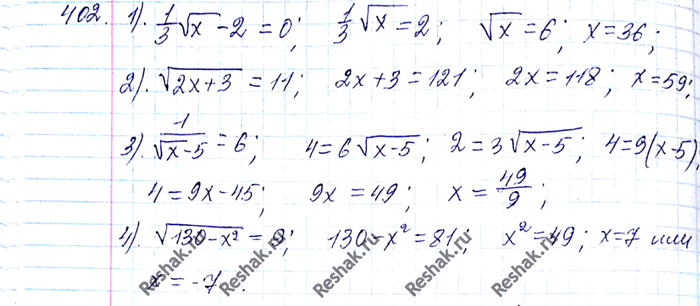 402. 1). 1/3 √x - 2 = 0; 1/3 √x = 2; √x = 6; x = 36;
2). √(2x+3) = 11; 2x+3 = 121; 2x = 118; x = 59;
3) 1/(√x-5) = 6; 4 = 6√(x-5); 2 = 3√(x-5); 4 = 9(x-5);
4 = 9x - 45; 9x = 49; x = 49/9;
4). √(130-x²) = 9; 130-x² = 81; x² = 49; x = 7 или
x = -7.
Reshak.ru Reshak.ru Reshak.ru Reshak.ru Reshak.ru